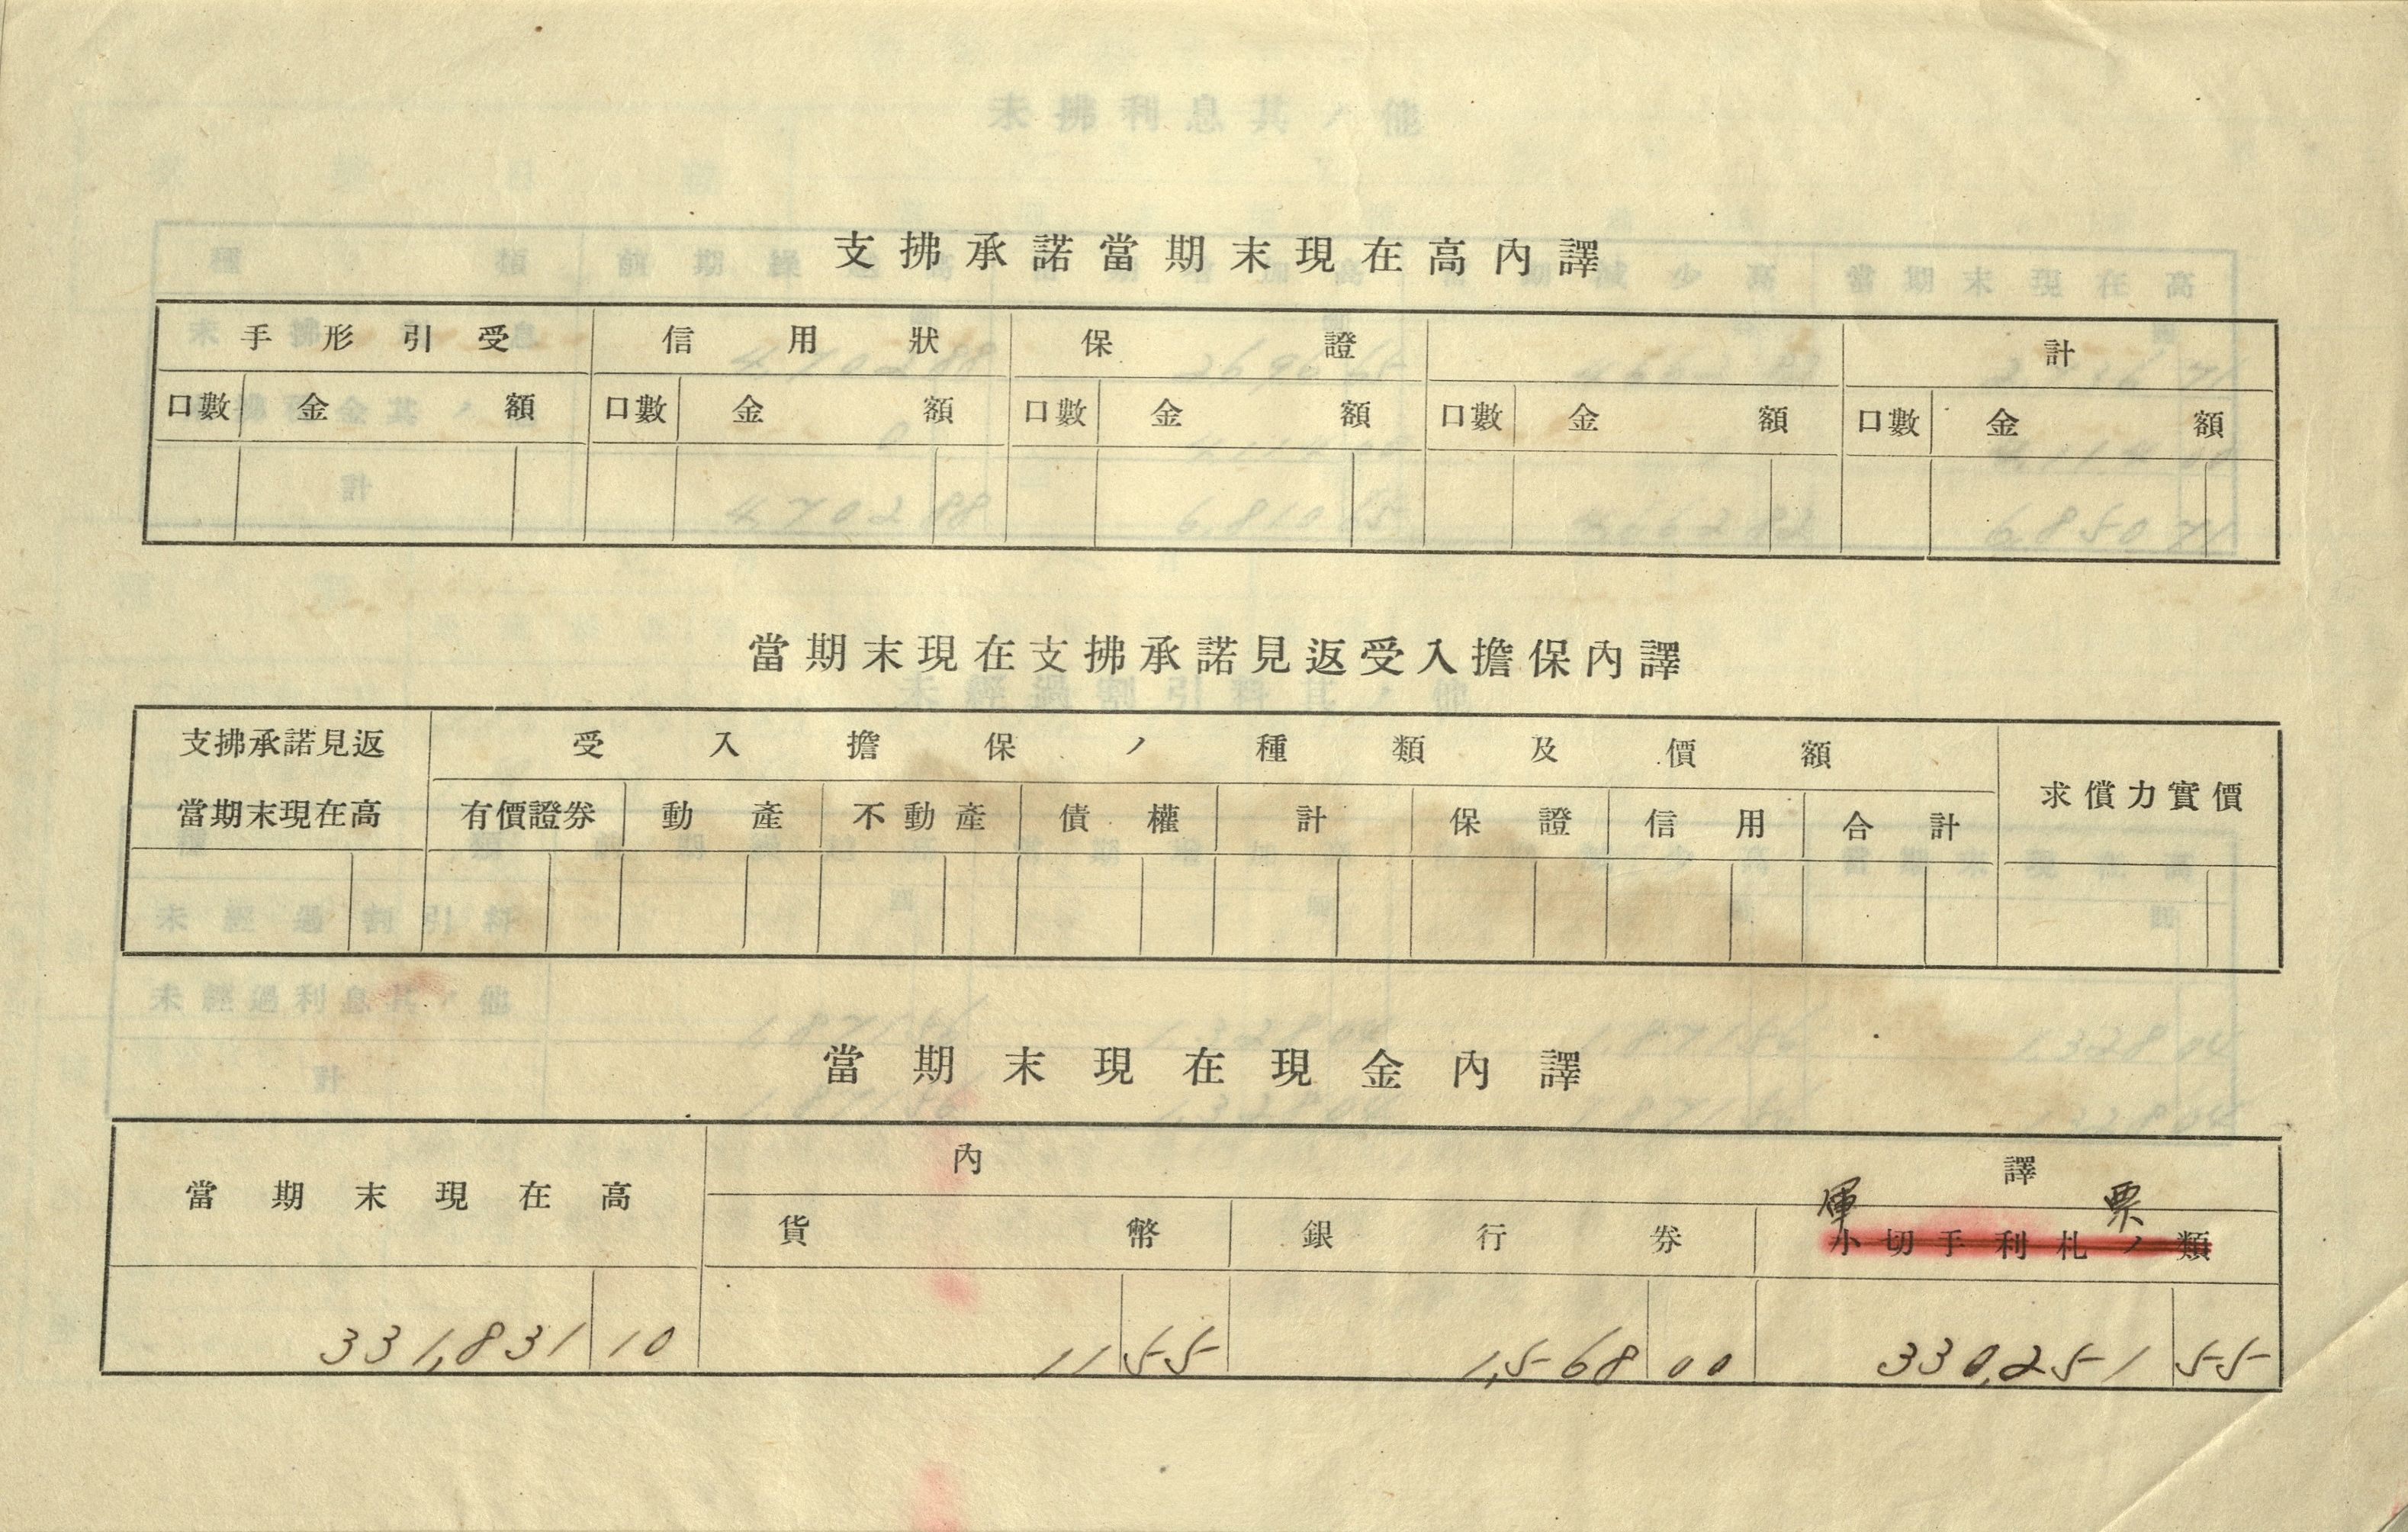 支拂承諾當期末現在高內譯
手形引受 信用狀 保證 計
口數 金額 口數 金額 口數 金額 口數 金額 口數 金額
當期末現在支拂承諾見返受入擔保內譯
支拂承諾見返 受入擔保ノ種類及價額
當期末現在高 有價證券 動產 不動產 債權 計 保證 信用 合計 求償力實價
當期末現在現金內譯
內譯
當期末現在高 軍票
貨幣 銀行券 小切手利札ノ類
331,831 10 11 55 1,568 00 330,251 55